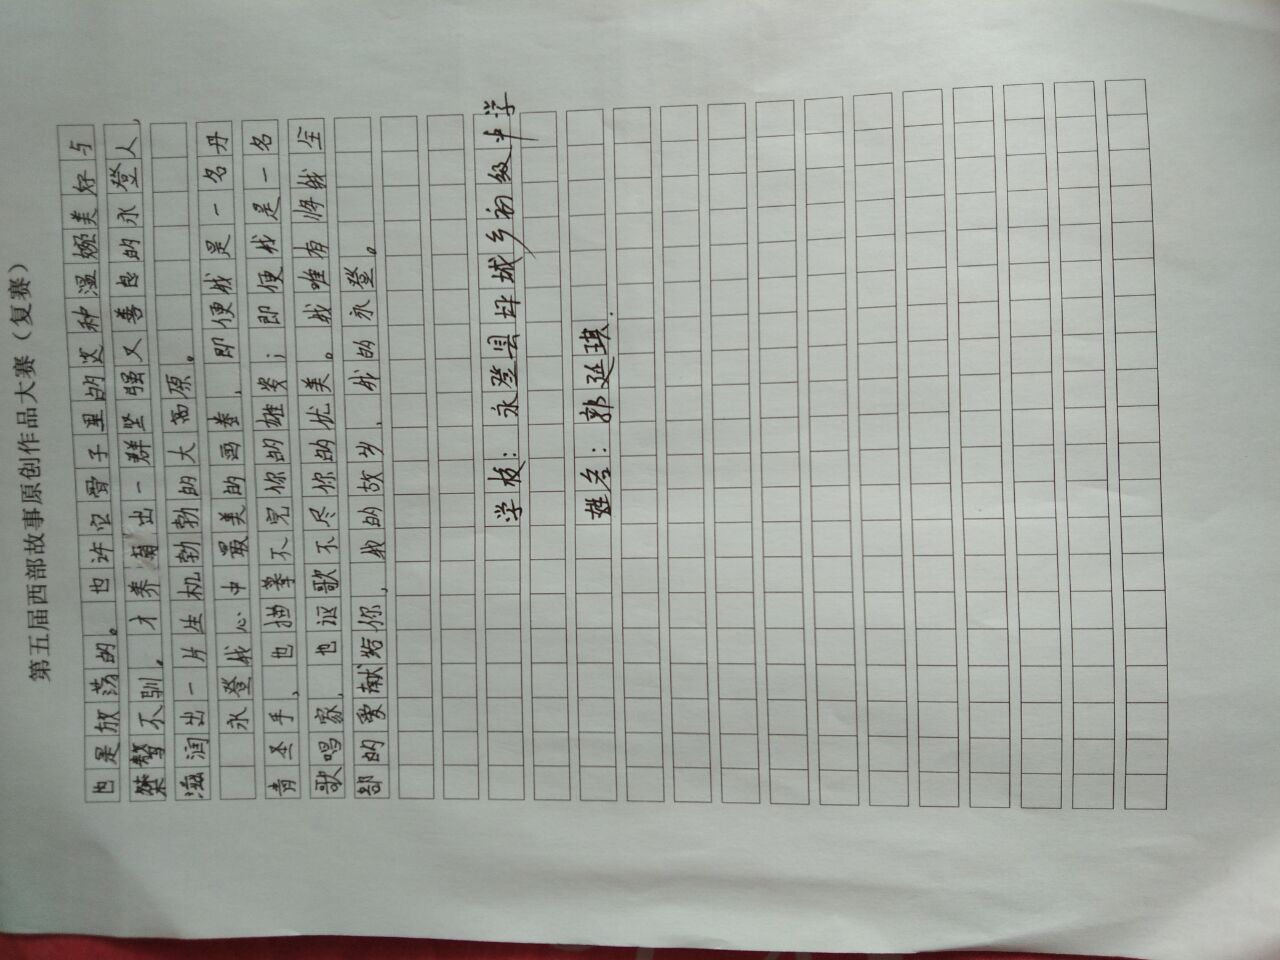 第五届西部故事原创作品大赛（复赛）
也是放荡的。也许它骨子里的这种温婉美好与
桀骜不驯，才养育出一群坚强又善良的永登人，
滋润出一片生机勃勃的大高原。
永登我心中最美的画卷，即便我是一名丹
青圣手，也描摹不完你的雄姿；即便我是一名
歌唱家，也讴歌不尽你的优美。我唯有将我全
部的爱献给你，我的故乡，我的永登。
学校：永登县坪城乡初级中学
姓名：郭延琪.